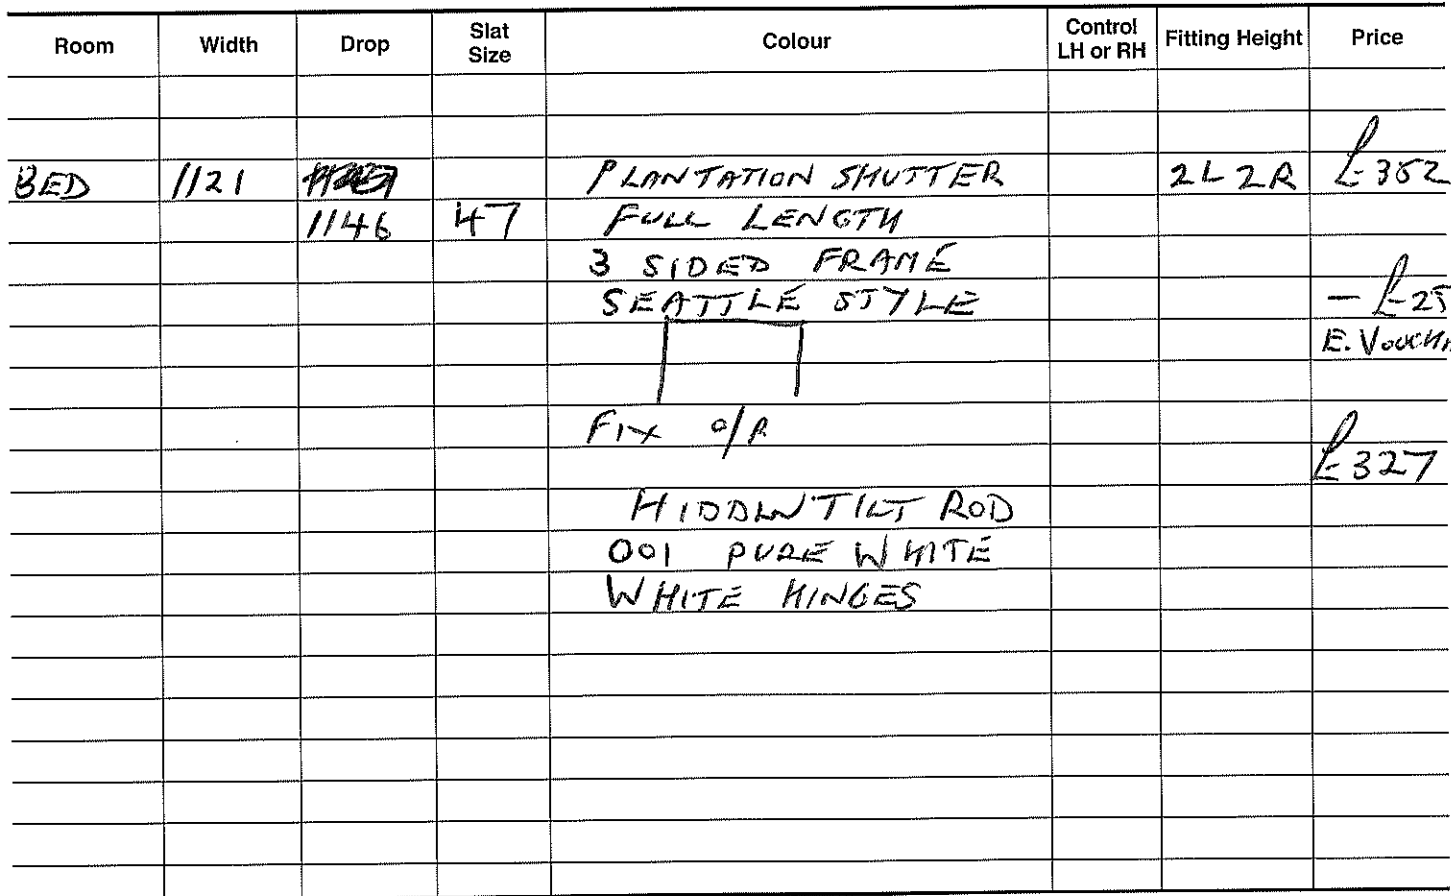 Room Width Drop Slat Size Colour Control LH or RH Fitting Height Price
BED 1121 PLANTATION SHUTTER 2L 2R £352
1146 47 FULL LENGTH
3 SIDED FRAME
SEATTLE STYLE - £25
E.
FIX O/R
£327
HIDDEN TILT ROD
001 PURE WHITE
WHITE HINGES